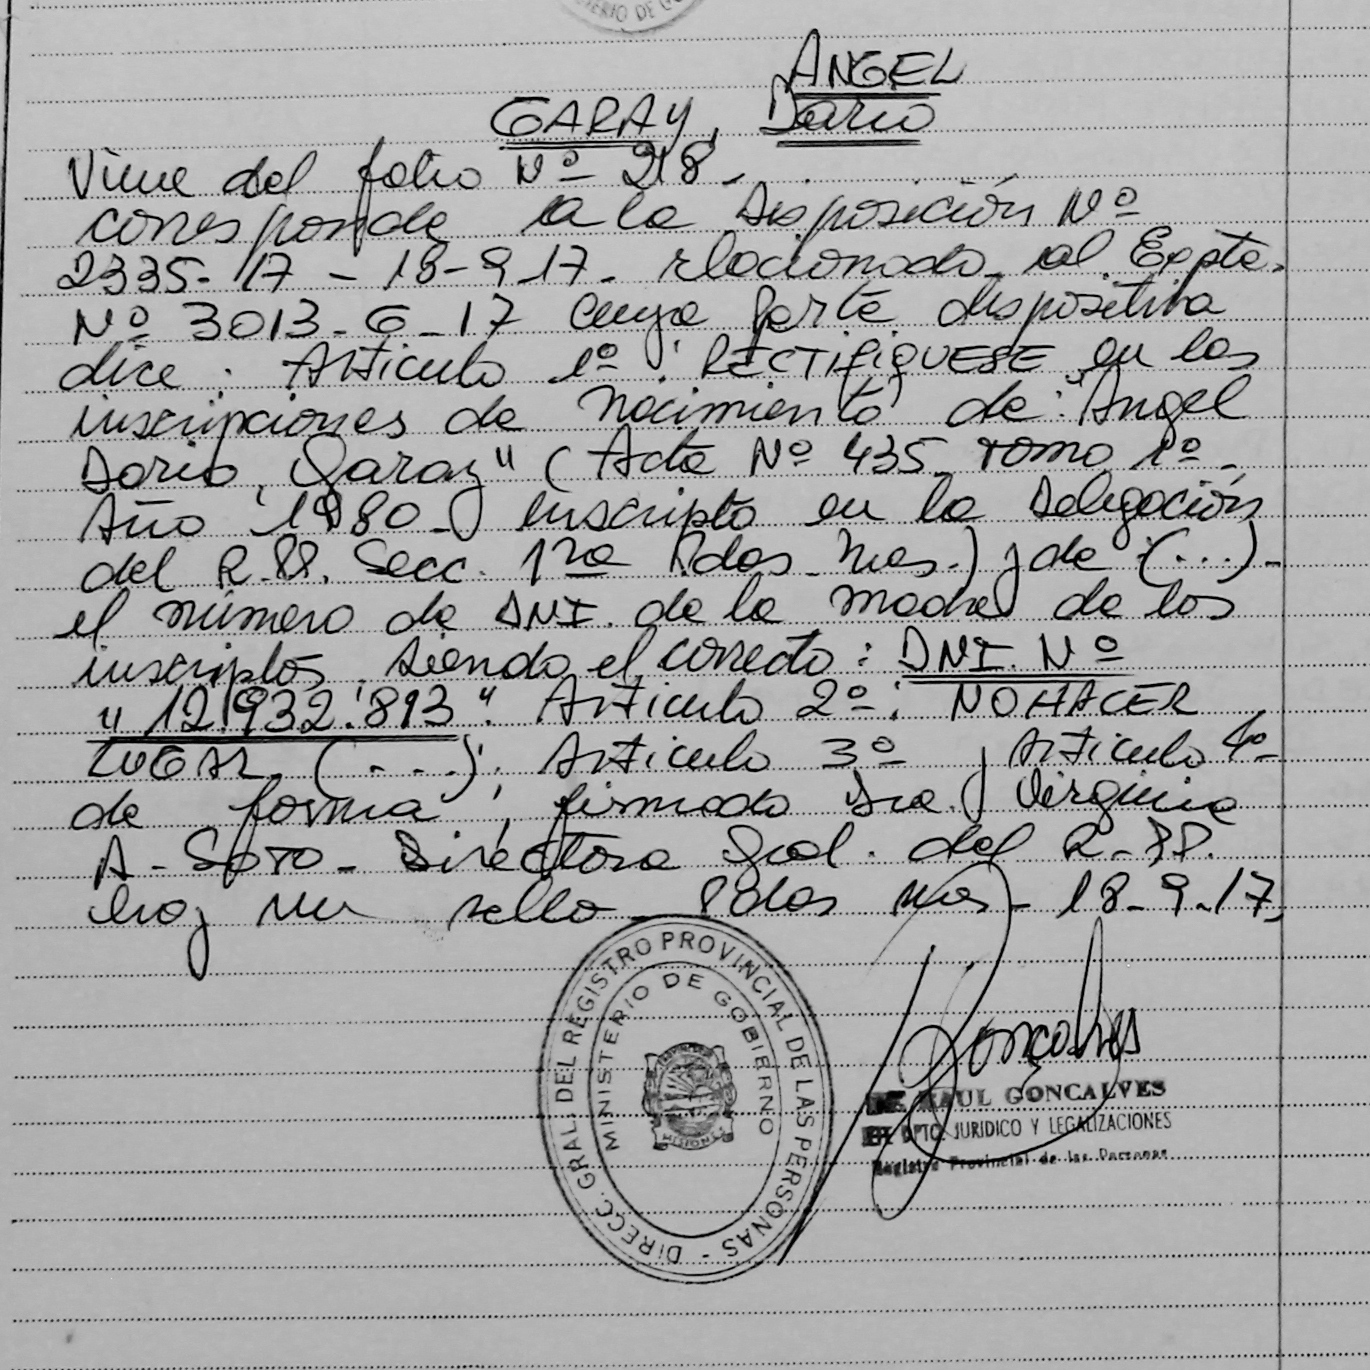 ANGEL
GARAY, Dario
Viene del folio Nº 218.
corresponde a la Disposición Nº
2335-17 - 18-9-17- relacionado al Expte.
Nº 3013-G-17 cuya parte dispositiva
dice: Artículo 1º: RECTIFIQUESE en las
inscripciones de nacimiento de: "Angel
Dario, Garay" (Acta Nº 435- Tomo 1º-
Año 1980- inscripto en la Delegación
del R.PP. Secc. 1ra Pdas. Mnes.) y de (...)-
el número de DNI. de la madre de los
inscriptos, siendo el correcto: DNI. Nº
"12.932.893". Artículo 2º: NO HACER
LUGAR, (...). Artículo 3º y Artículo 4º
de forma, firmado Dra. Virginia
A- Soto- Directora Gral. del R-PP.
hay un sello- Pdas Mnes- 18-9-17,
DIRECC. GRAL. DEL REGISTRO PROVINCIAL DE LAS PERSONAS -
MINISTERIO DE GOBIERNO
MISIONES
Goncalves
RAUL GONCALVES
DPTO. JURIDICO Y LEGALIZACIONES
Registro Provincial de las Personas